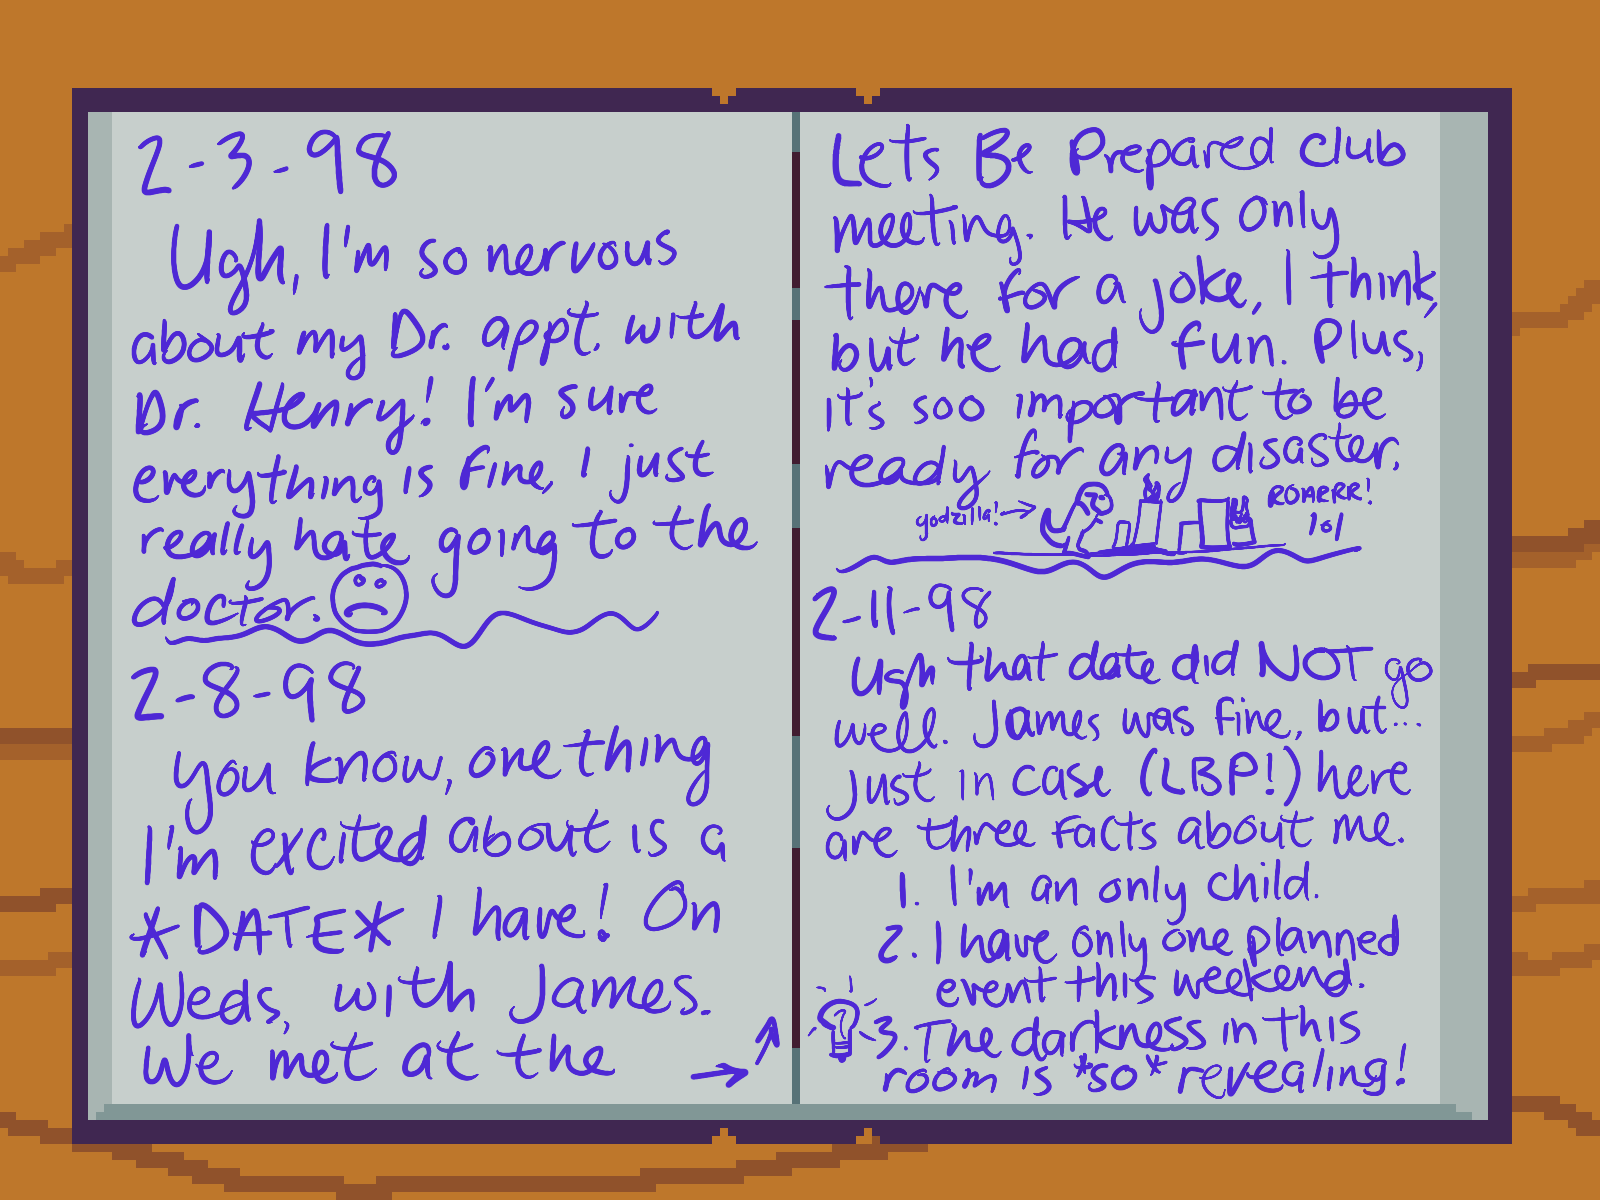 2-3-98
Ugh, I'm so nervous
about my Dr. appt. with
Dr. Henry! I'm sure
everything is fine, I just
really hate going to the
doctor.
2-8-98
You know, one thing
I'm excited about is a
*DATE* I have! On
Weds, with James.
We met at the
Lets Be Prepared club
meeting. He was only
there for a joke, I think,
but he had fun. Plus,
it's soo important to be
ready for any disaster.
godzilla!
ROAERR!
lol
2-11-98
Ugh that date did NOT go
well. James was fine, but...
Just in case (LBP!) here
are three facts about me.
1. I'm an only child.
2. I have only one planned
event this weekend.
3. The darkness in this
room is *so* revealing!